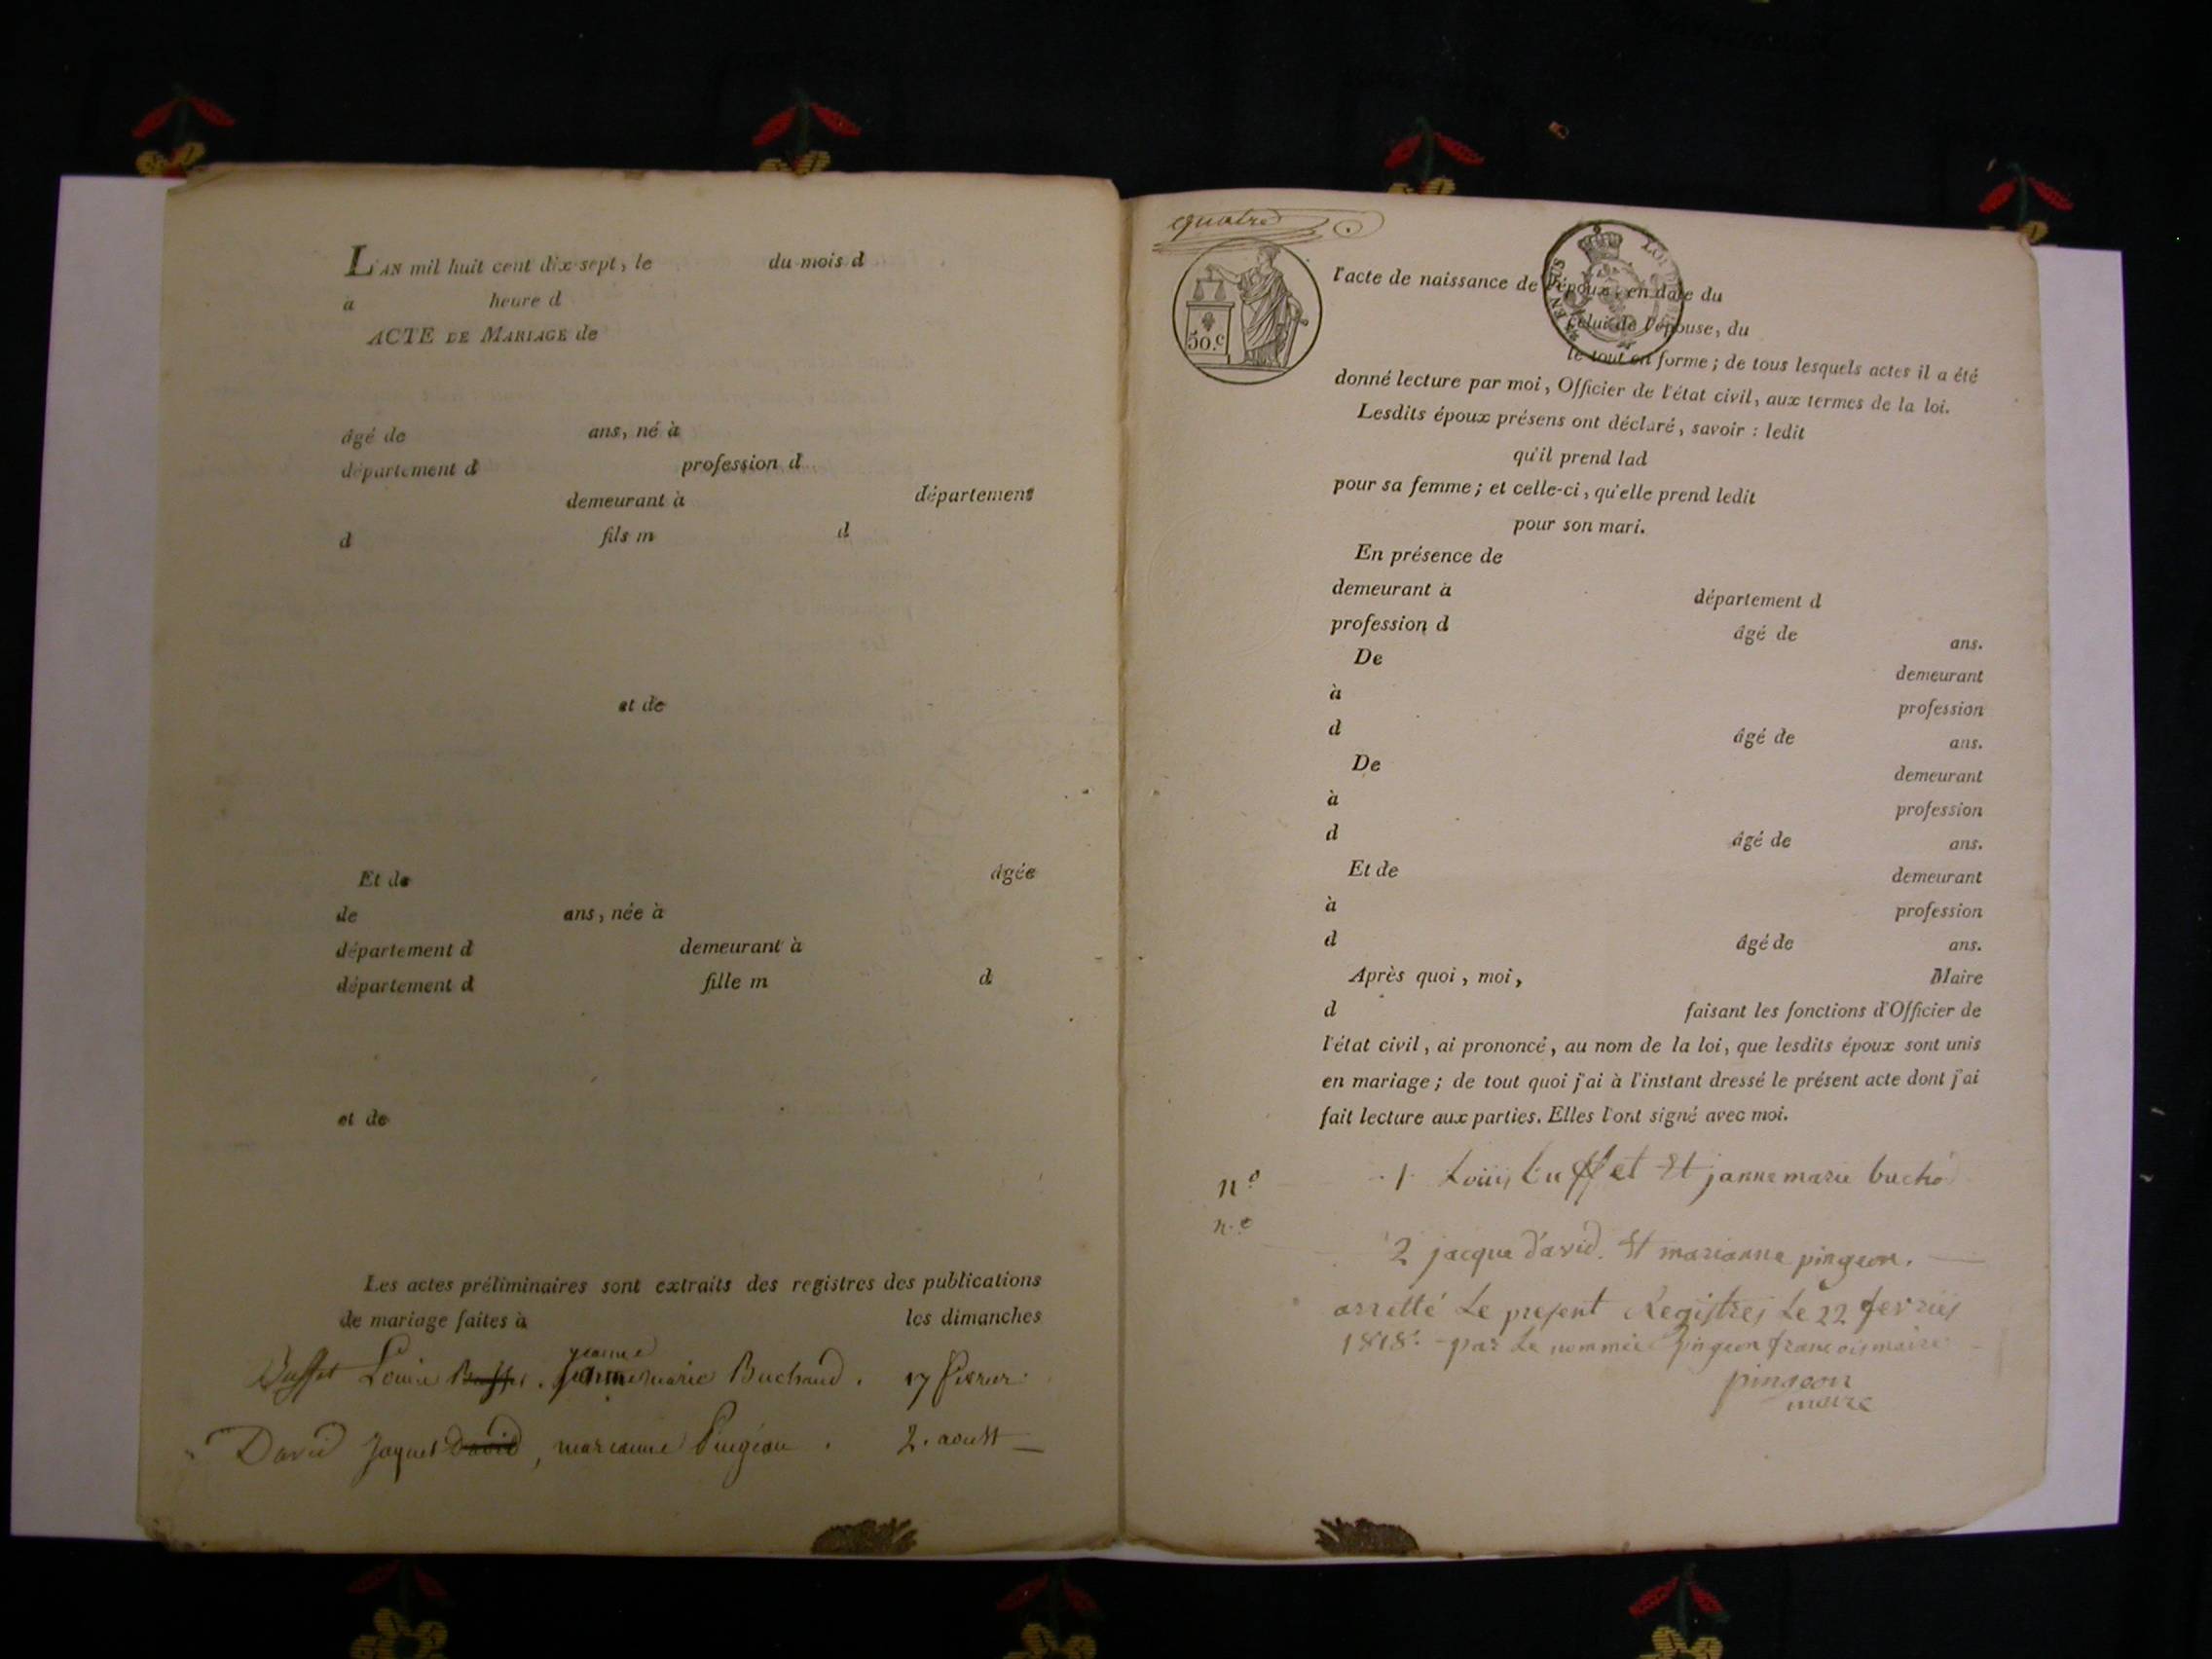 L'AN mil huit cent dix-sept, le du mois d
à heure d
ACTE DE MARIAGE de
âgé de ans, né à
département d profession d
demeurant à département
d fils m d
et de
Et de âgée
de ans, née à
département d demeurant à
département d fille m d
et de
Les actes préliminaires sont extraits des registres des publications
de mariage faites à les dimanches
jeanne
Buffet Louis Buffet. jeanne marie Buchaud. 17 fevrier
David Jaques David, marianne Pingeon. 2. aoust
quatre
50.c
l'acte de naissance de l'époux, en date du
celui de l'épouse, du
le tout en forme; de tous lesquels actes il a été
donné lecture par moi, Officier de l'état civil, aux termes de la loi.
Lesdits époux présens ont déclaré, savoir : ledit
qu'il prend lad
pour sa femme; et celle-ci, qu'elle prend ledit
pour son mari.
En présence de
demeurant à département d
profession d âgé de ans.
De demeurant
à profession
d âgé de ans.
De demeurant
à profession
d âgé de ans.
Et de demeurant
à profession
d âgé de ans.
Après quoi, moi, Maire
d faisant les fonctions d'Officier de
l'état civil, ai prononcé, au nom de la loi, que lesdits époux sont unis
en mariage; de tout quoi j'ai à l'instant dressé le présent acte dont j'ai
fait lecture aux parties. Elles l'ont signé avec moi.
n.o 1 Louis buffet Et janne marie bucho
n.o 2 jacque david. Et marianne pingeon.
arretté Le present Registres Le 22 fevrier
1818. par Le nommée pingeon francois maire
pingeon
maire